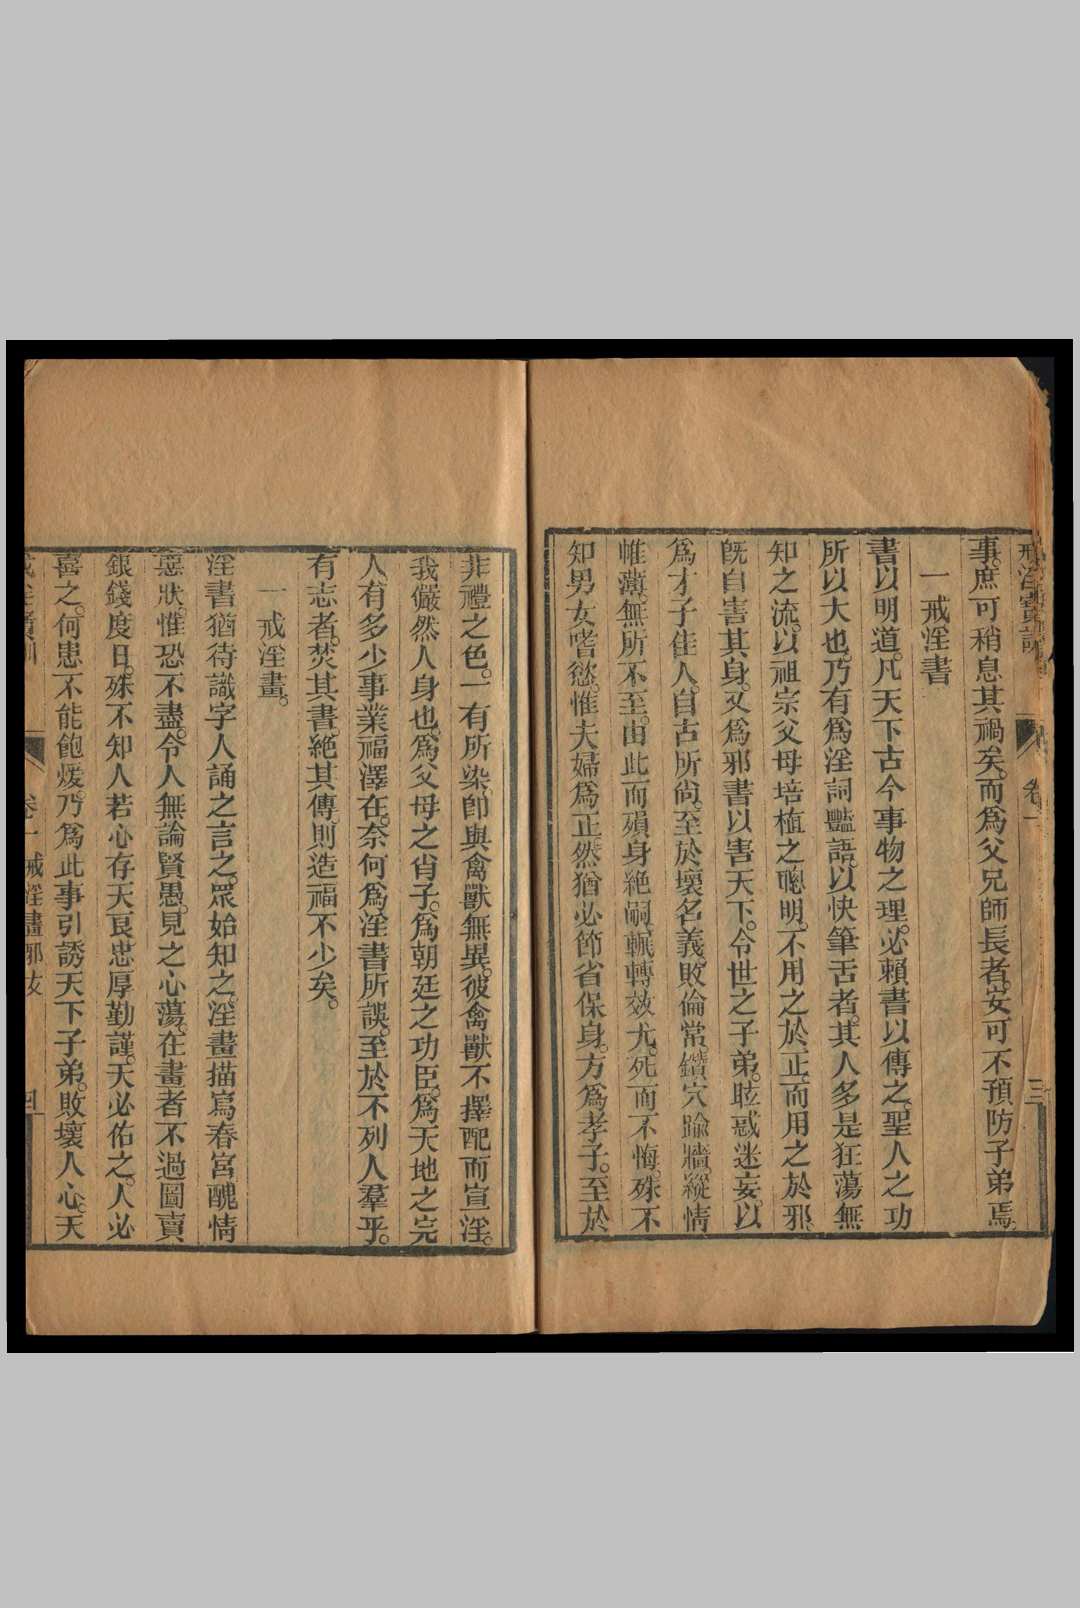 戒淫寶訓 卷一 三
事。庶可稍息其禍矣。而爲父兄師長者。安可不預防子弟焉。
一戒淫書
書以明道。凡天下古今事物之理。必賴書以傳之。聖人之功
所以大也。乃有爲淫詞豔語。以快筆舌者。其人多是狂蕩無
知之流。以祖宗父母培植之聰明。不用之於正。而用之於邪。
旣自害其身。又爲邪書以害天下。令世之子弟。眩惑迷妄。以
爲才子佳人。自古所尙。至於壞名義。敗倫常。鑽穴踰牆。縱情
帷薄。無所不至。由此而殞身絶嗣。輾轉效尤。死而不悔。殊不
知男女嗜慾。惟夫婦爲正。然猶必節省保身。方爲孝子。至於
非禮之色。一有所染。卽與禽獸無異。彼禽獸不擇配而宣淫。
我儼然人身也。爲父母之肖子。爲朝廷之功臣。爲天地之完
人。有多少事業福澤在。奈何爲淫書所誤。至於不列人羣乎。
有志者。焚其書。絶其傳。則造福不少矣。
一戒淫畫。
淫書猶待識字人誦之言之。眾始知之。淫畫描寫春宮醜情
惡狀。惟恐不盡。令人無論賢愚。見之心蕩。在畫者不過圖賣
銀錢度日。殊不知人若心存天良。忠厚勤謹。天必佑之。人必
喜之。何患不能飽煖。乃爲此事引誘天下子弟。敗壞人心。天
卷一 戒淫畫 四